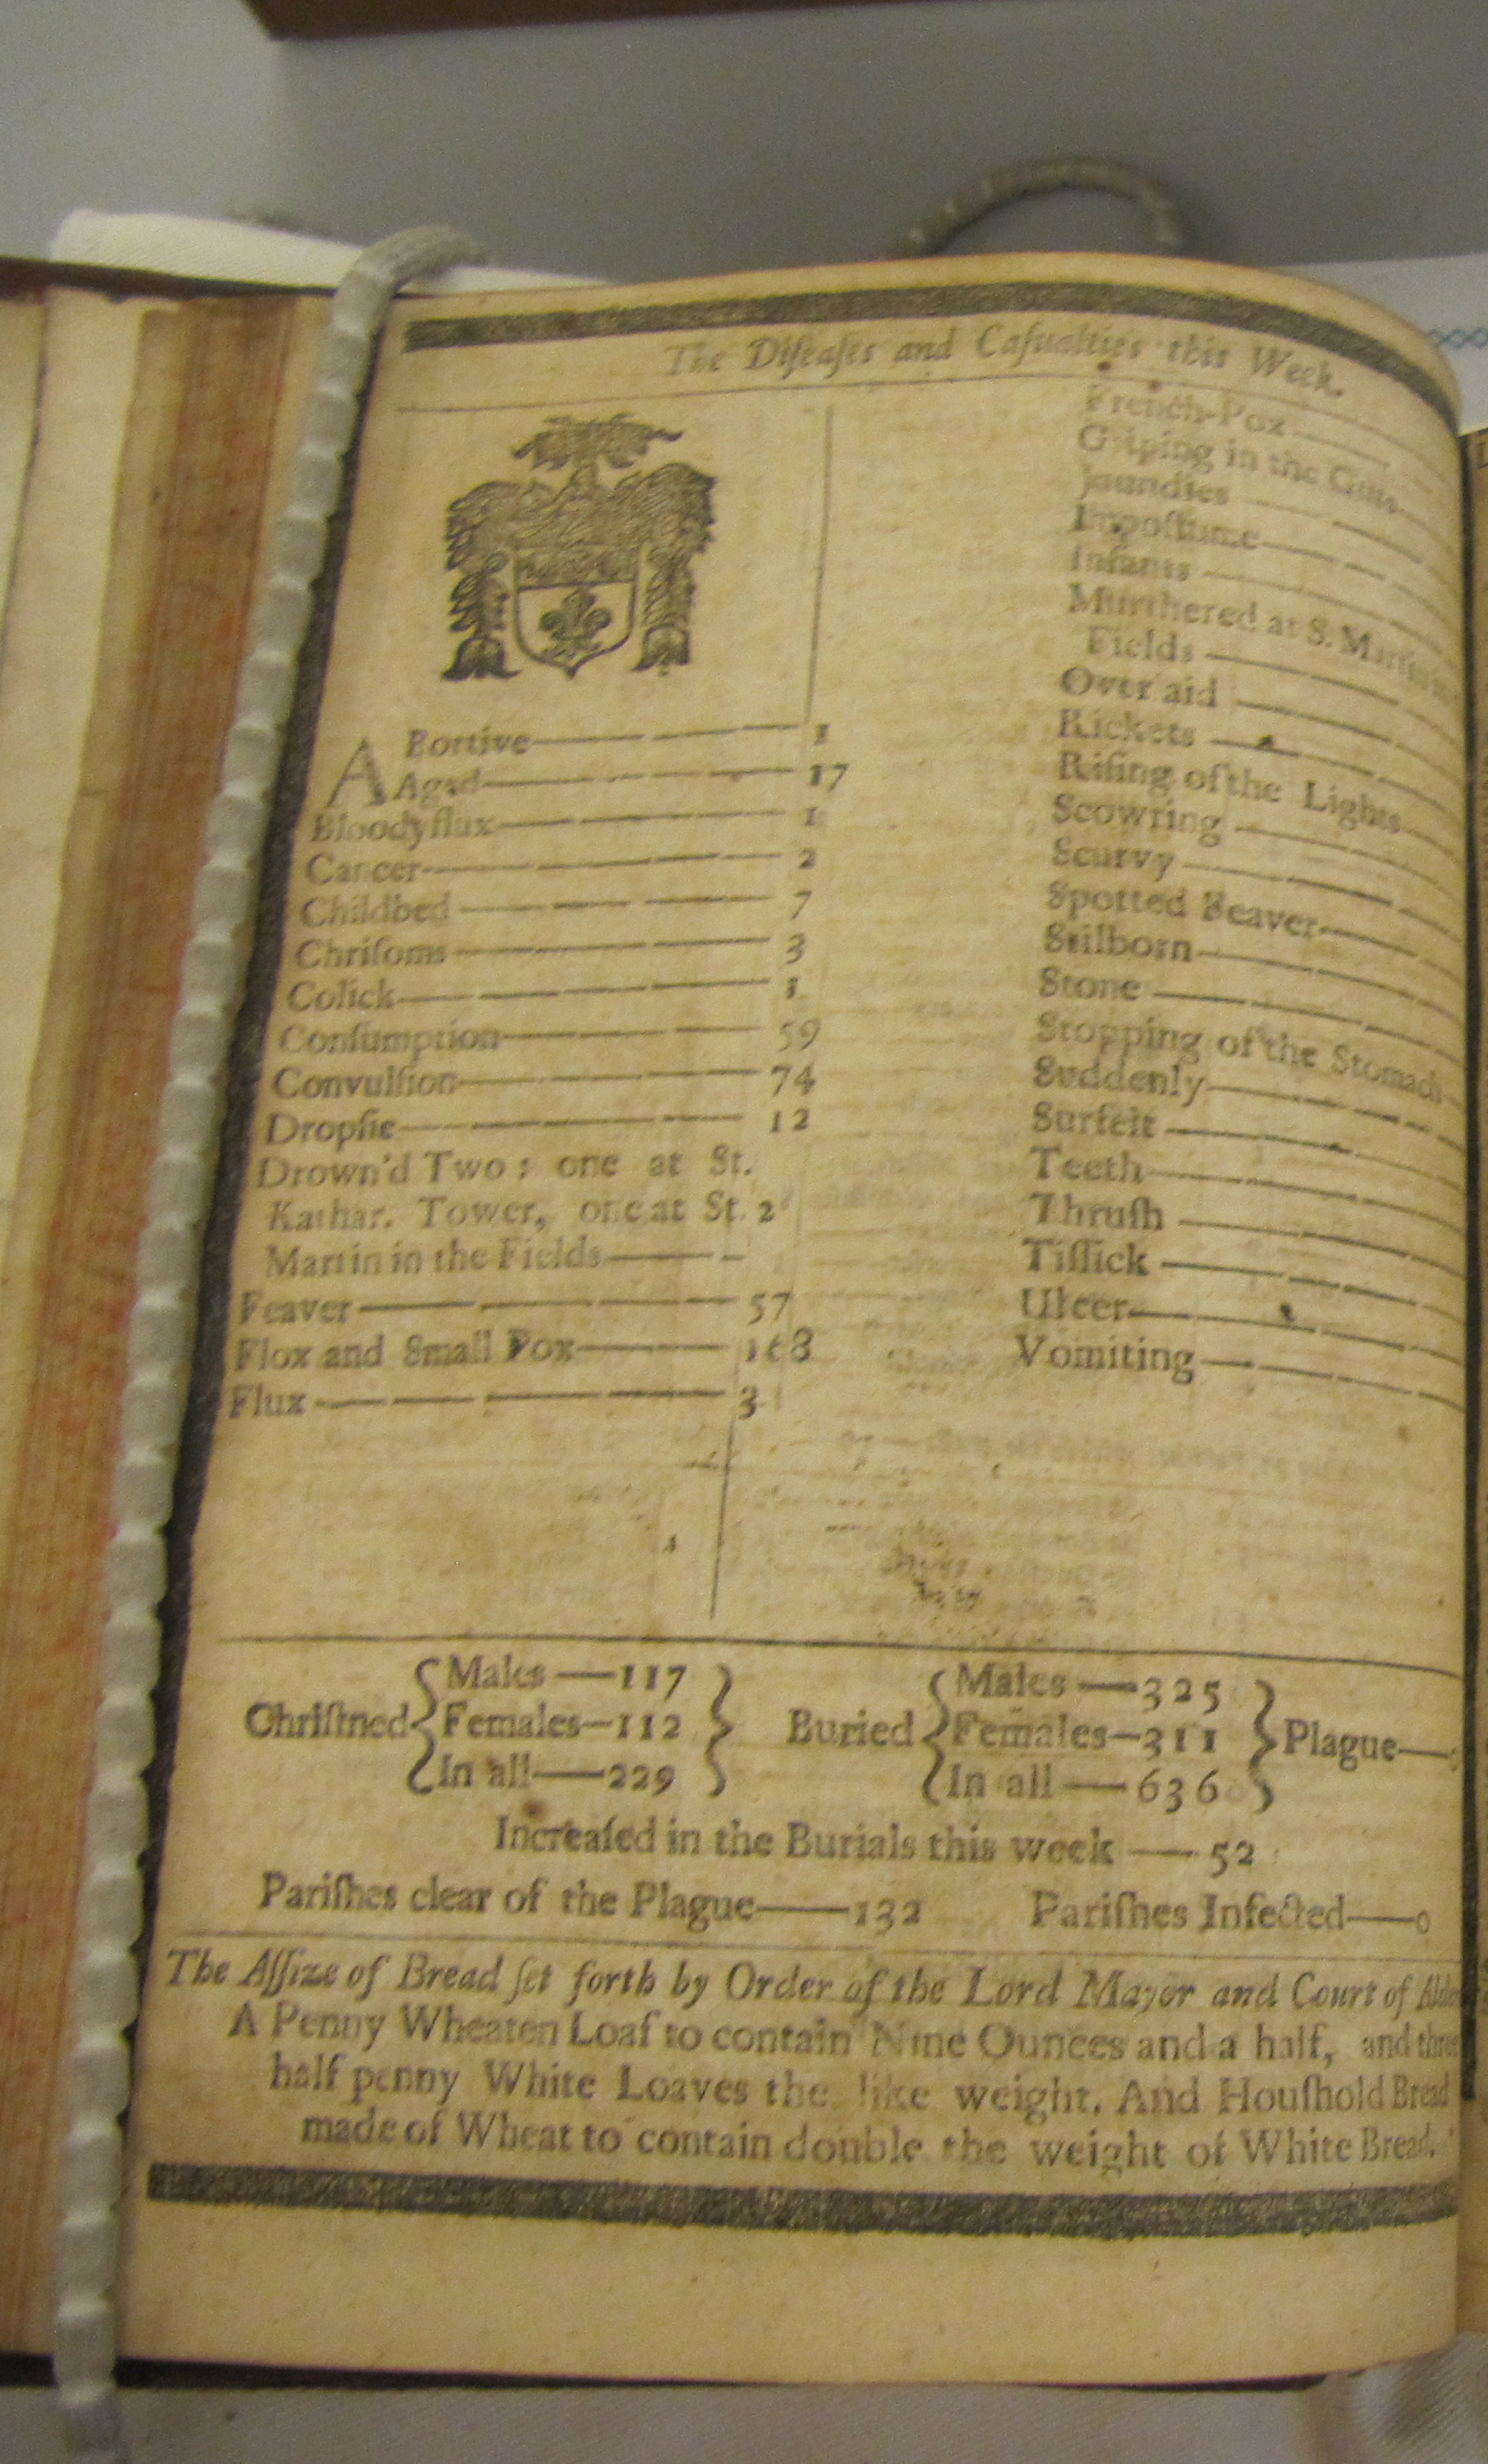 The Diſeaſes and Caſualties this Week.
ABortive — 1
Aged — 17
Bloodyflux — 1
Cancer — 2
Childbed — 7
Chriſoms — 3
Colick — 1
Conſumption — 59
Convulſion — 74
Dropſie — 12
Drown'd Two: one at St.
Kathar. Tower, one at St. 2
Martin in the Fields —
Feaver — 57
Flox and Small Pox — 168
Flux — 3
French-Pox —
Griping in the Guts —
Jaundies —
Impoſtume —
Infants —
Murthered at S. Martin in
Fields —
Over aid —
Rickets —
Riſing of the Lights —
Scowring —
Scurvy —
Spotted Feaver —
Stilborn —
Stone —
Stopping of the Stomach
Suddenly —
Surfeit —
Teeth —
Thruſh —
Tiſſick —
Ulcer —
Vomiting —
Chriſtned { Males — 117 }
Females — 112
In all — 229
Buried { Males — 325 } Plague —
Females — 311
In all — 636
Increaſed in the Burials this week — 52
Pariſhes clear of the Plague — 132 Pariſhes Infected — 0
The Aſſize of Bread ſet forth by Order of the Lord Mayor and Court of
A Penny Wheaten Loaf to contain Nine Ounces and a half, and three
half penny White Loaves the like weight. And Houſhold Bread
made of Wheat to contain double the weight of White Bread.